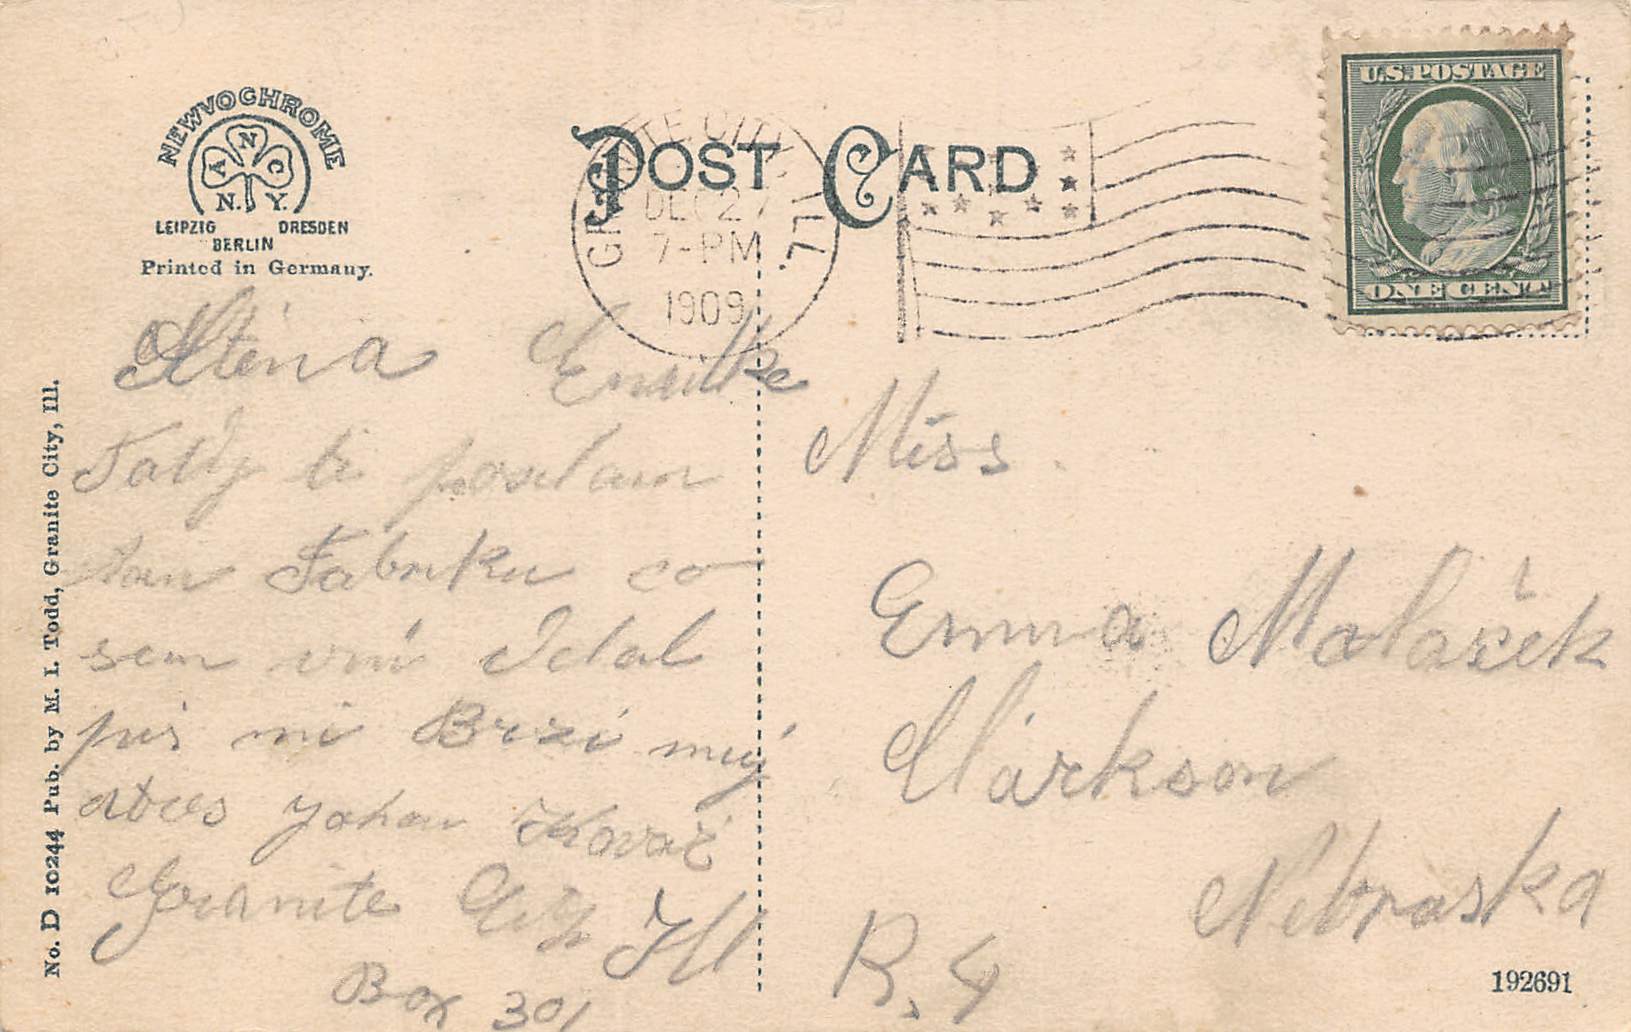 NEWVOCHROME
A N C
N. Y.
LEIPZIG DRESDEN
BERLIN
Printed in Germany.
POST CARD
GRANITE CITY, ILL.
DEC 27
7-PM
1909
U.S. POSTAGE
ONE CENT
No. D 10244 Pub. by M. I. Todd, Granite City, Ill.
Ema
Tady ti posilam
tam Fabriku co
sem vni Delal
piš mi Brzi muj
adres Johan Kovař
Granite City Ill
Box 301
Miss
Emma Molaček
Clarkson
Nebraska
R. 4
192691